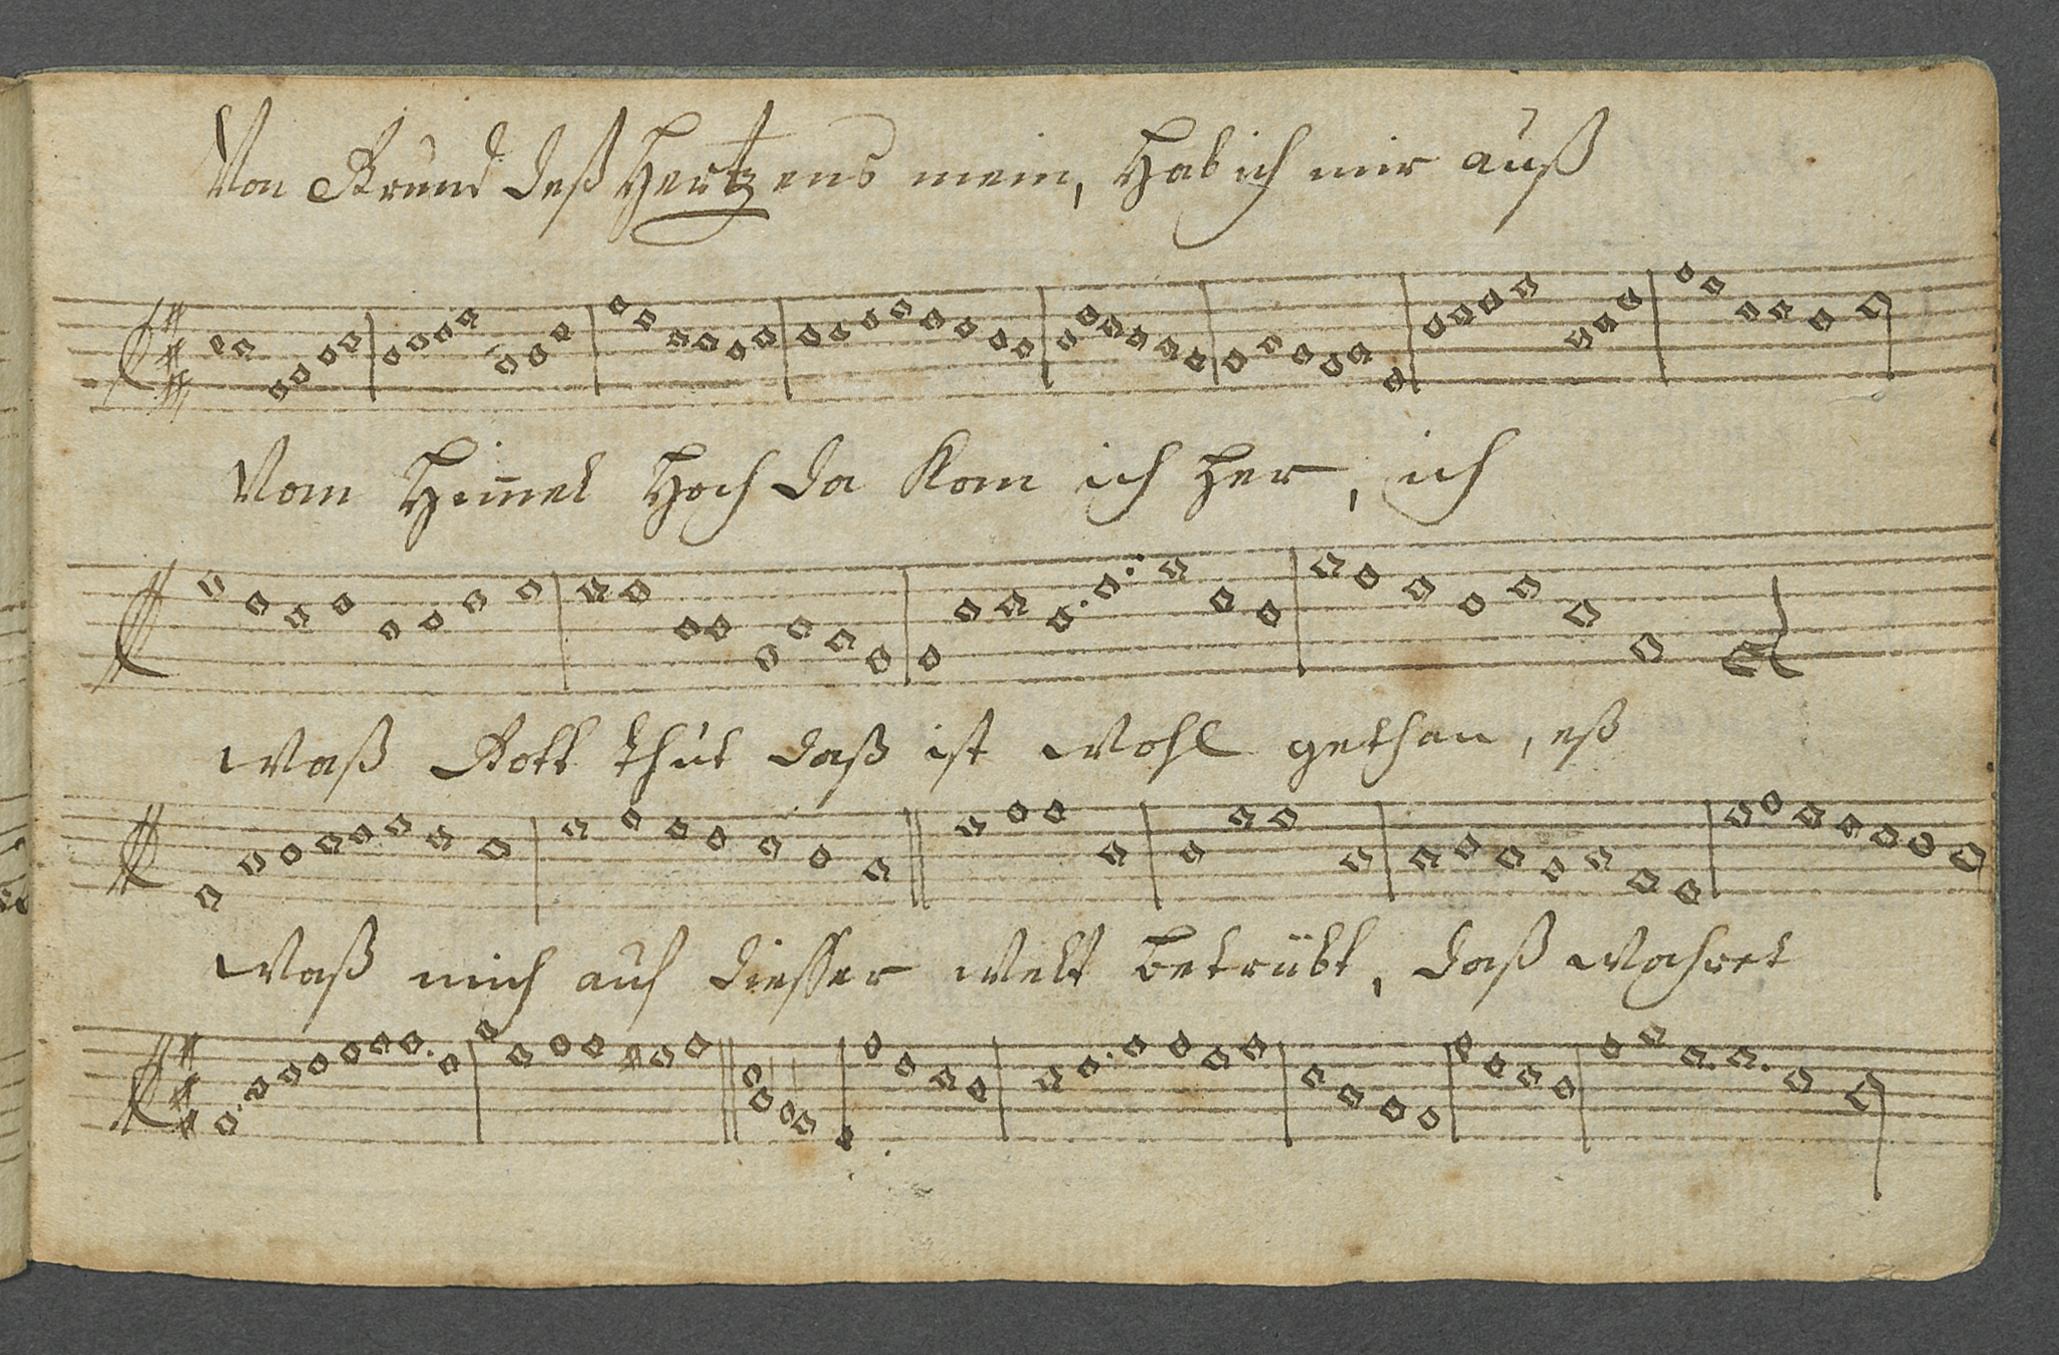 Von Grund deß Hertzens mein, Hab ich mir auß
Vom Him̅el Hoch da Kom ich her, ich
Waß Gott thut daß ist Wohl gethan, eß
Waß mich auf diesser Welt betrübt, daß Wahret